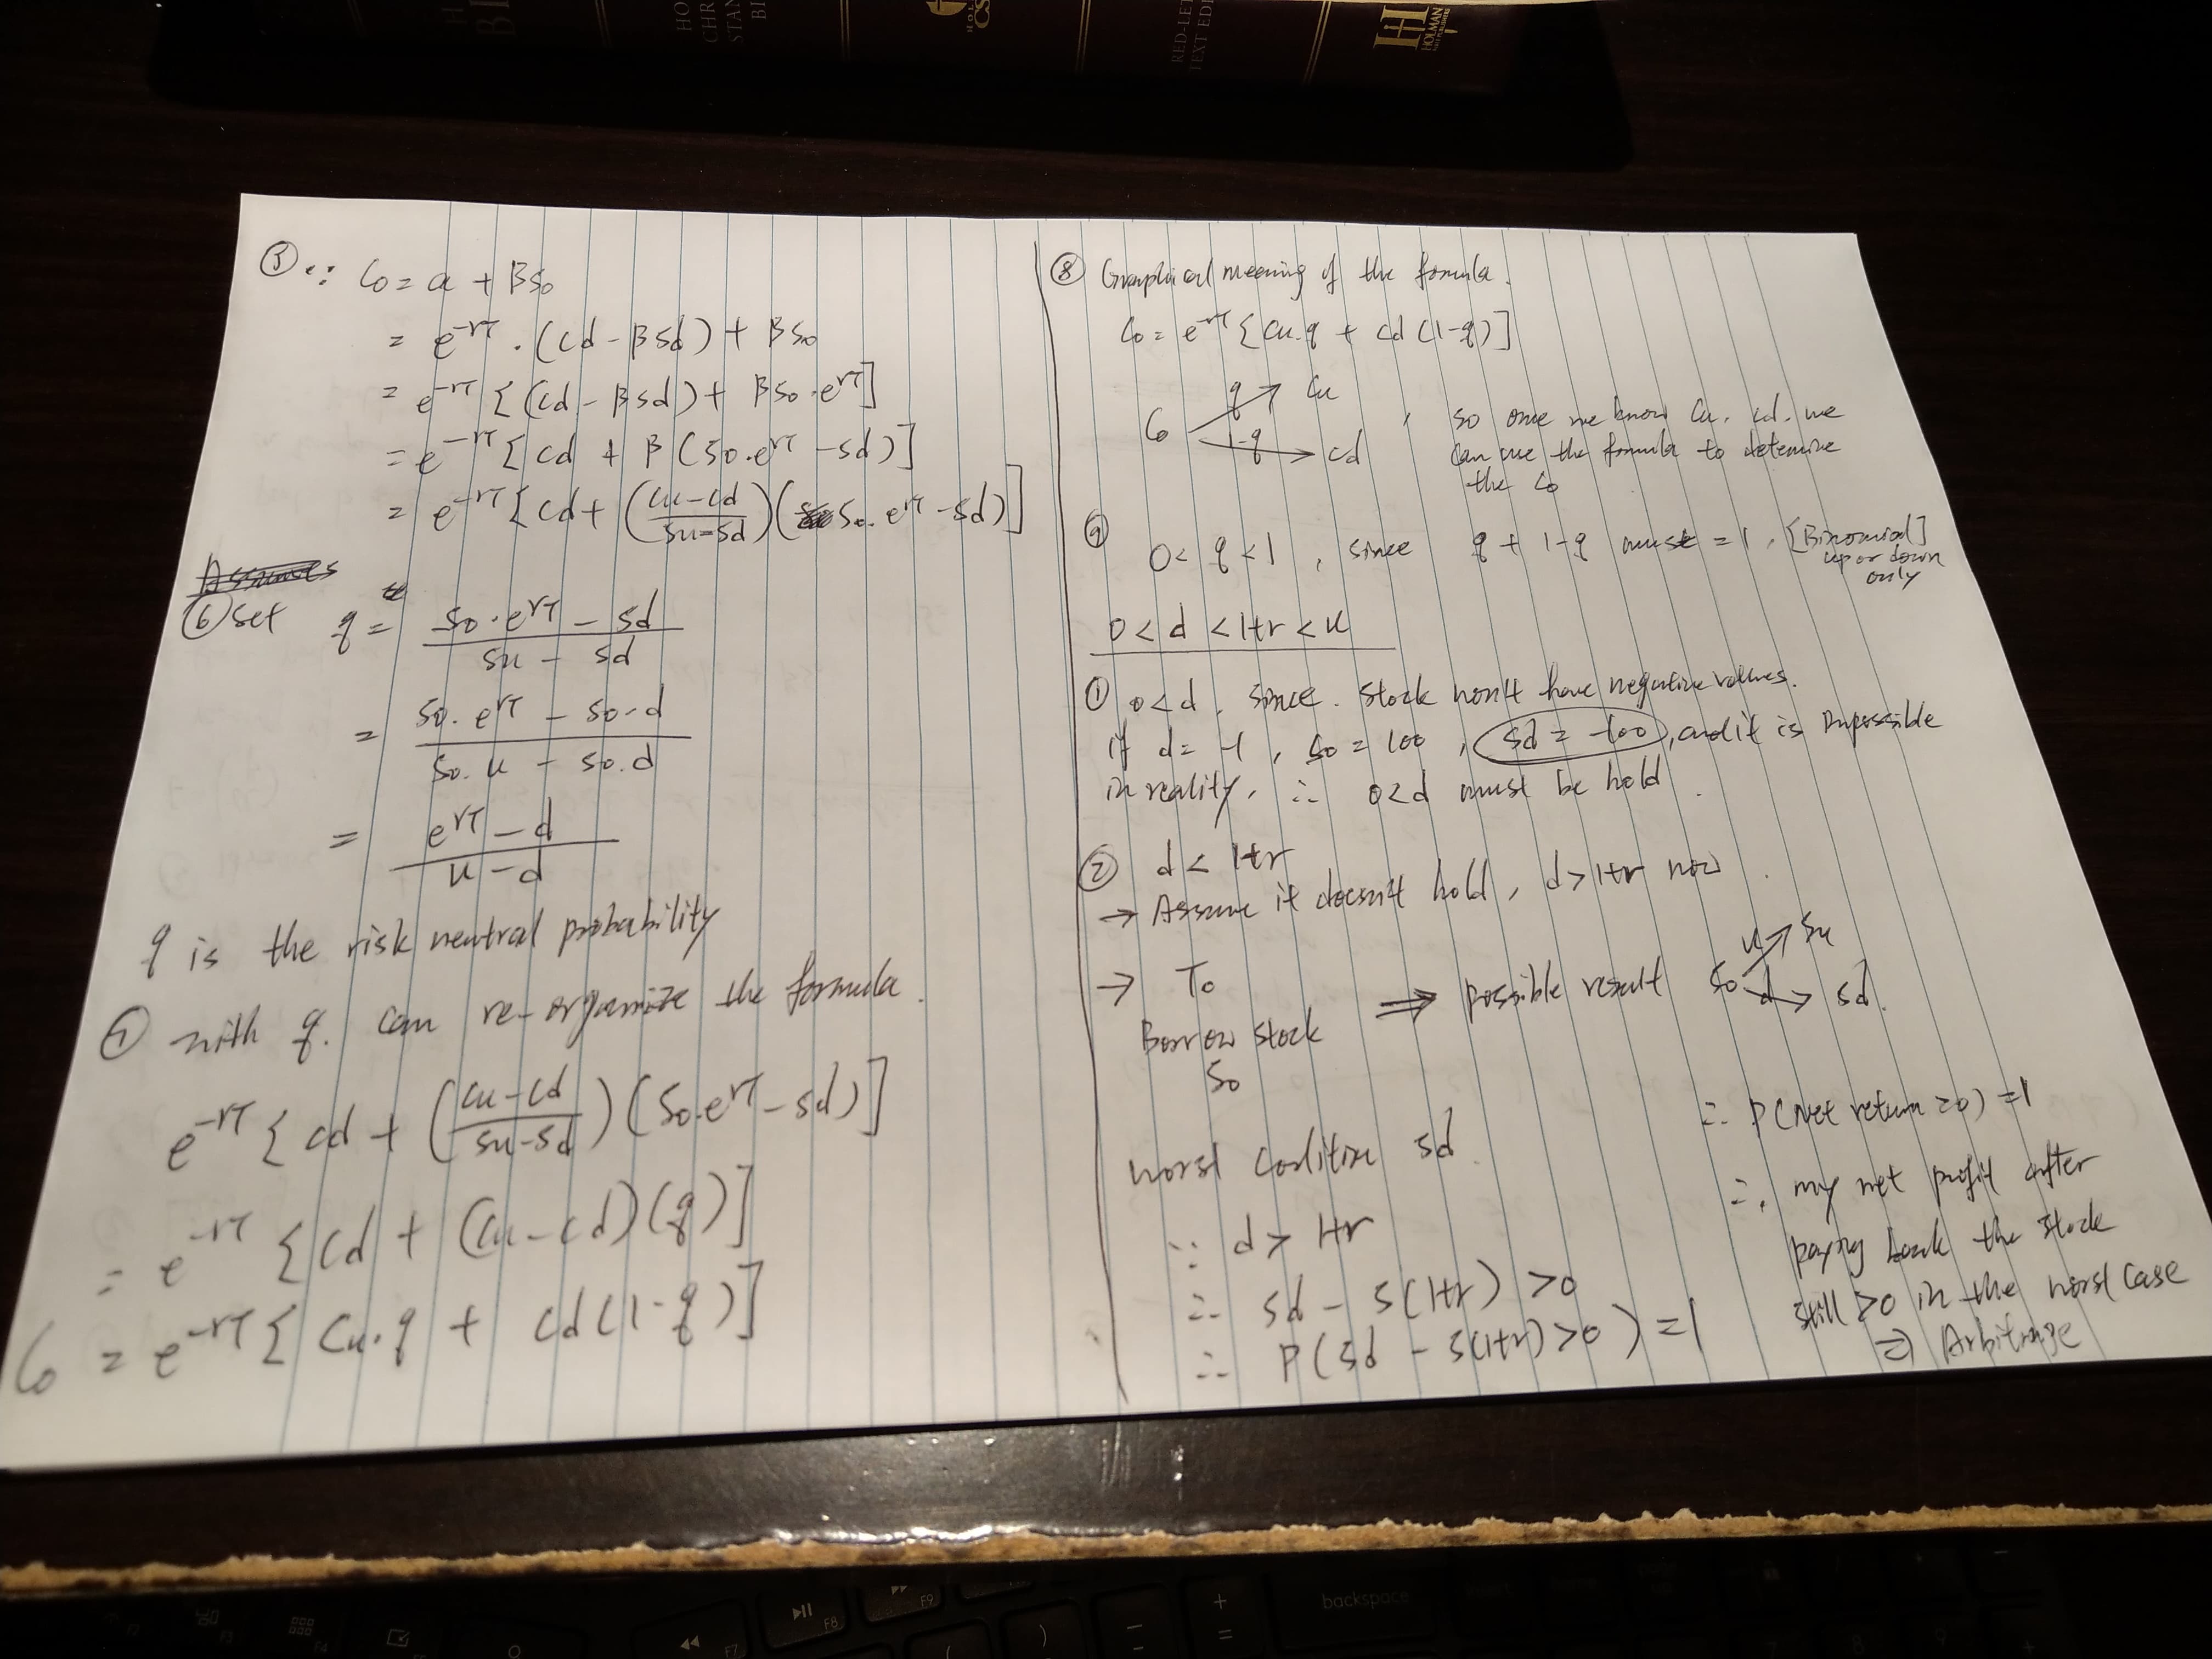 HOLMAN
RED-LET
TEXT EDI
CS
HO
CHR
STAN
BI
⑤ ∵ C0 = α + βS0
= e^-rT · (Cd - βSd) + βS0
= e^-rT {(Cd - βSd) + βS0·e^rT]
= e^-rT {Cd + β(S0·e^rT - Sd)]
= e^-rT {Cd + (Cu-Cd / Su-Sd)(S0·e^rT - Sd)]
Assumes
⑥ Set q = S0·e^rT - Sd / Su - Sd
= S0·e^rT - S0·d / S0·u - S0·d
= e^rT - d / u - d
q is the risk neutral probability
⑦ with q. can re-organize the formula.
e^-rT {Cd + (Cu-Cd / Su-Sd)(S0·e^rT - Sd)]
= e^-rT {Cd + (Cu-Cd)(q)]
C0 = e^-rT {Cu·q + Cd(1-q)]
⑧ Graphical meaning of the formula.
C0 = e^-rT {Cu·q + Cd(1-q)]
C0 q Cu
1-q Cd
, so once we know Cu, Cd, we
can use the formula to detemine
the C0
⑨ 0 < q < 1 , since q + 1-q must = 1, [Binomial]
up or down
only
0 < d < 1+r < u
① 0 < d, since. stock won't have negative values.
if d = -1, S0 = 100, Sd = -100, and it is impossible
in reality, ∴ 0<d must be hold.
② d < 1+r
→ Assume it doesn't hold, d > 1+r now.
→ T0 ⇒ possible result S0 u Su
d Sd.
Borrow stock
S0
worst condition Sd.
∵ d > 1+r
∴ Sd - S(1+r) > 0
∴ P(Sd - S(1+r) > 0) = 1
∴ P(Net return ≥0) = 1
∴ my net profit after
paying back the stock
still >0 in the worst case
⇒ Arbitrage
F8
F9
F7
F4
F3
backspace